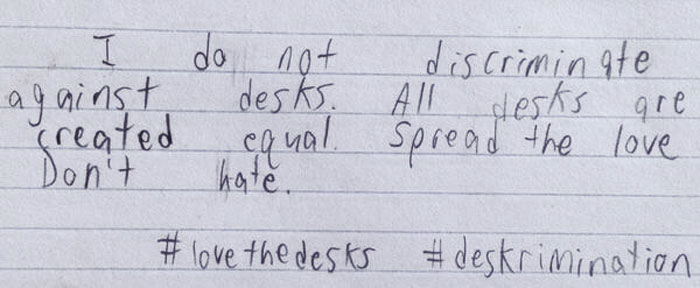 I do not discriminate
against desks. All desks are
created equal. Spread the love
Don't hate.
#lovethedesks #deskrimination